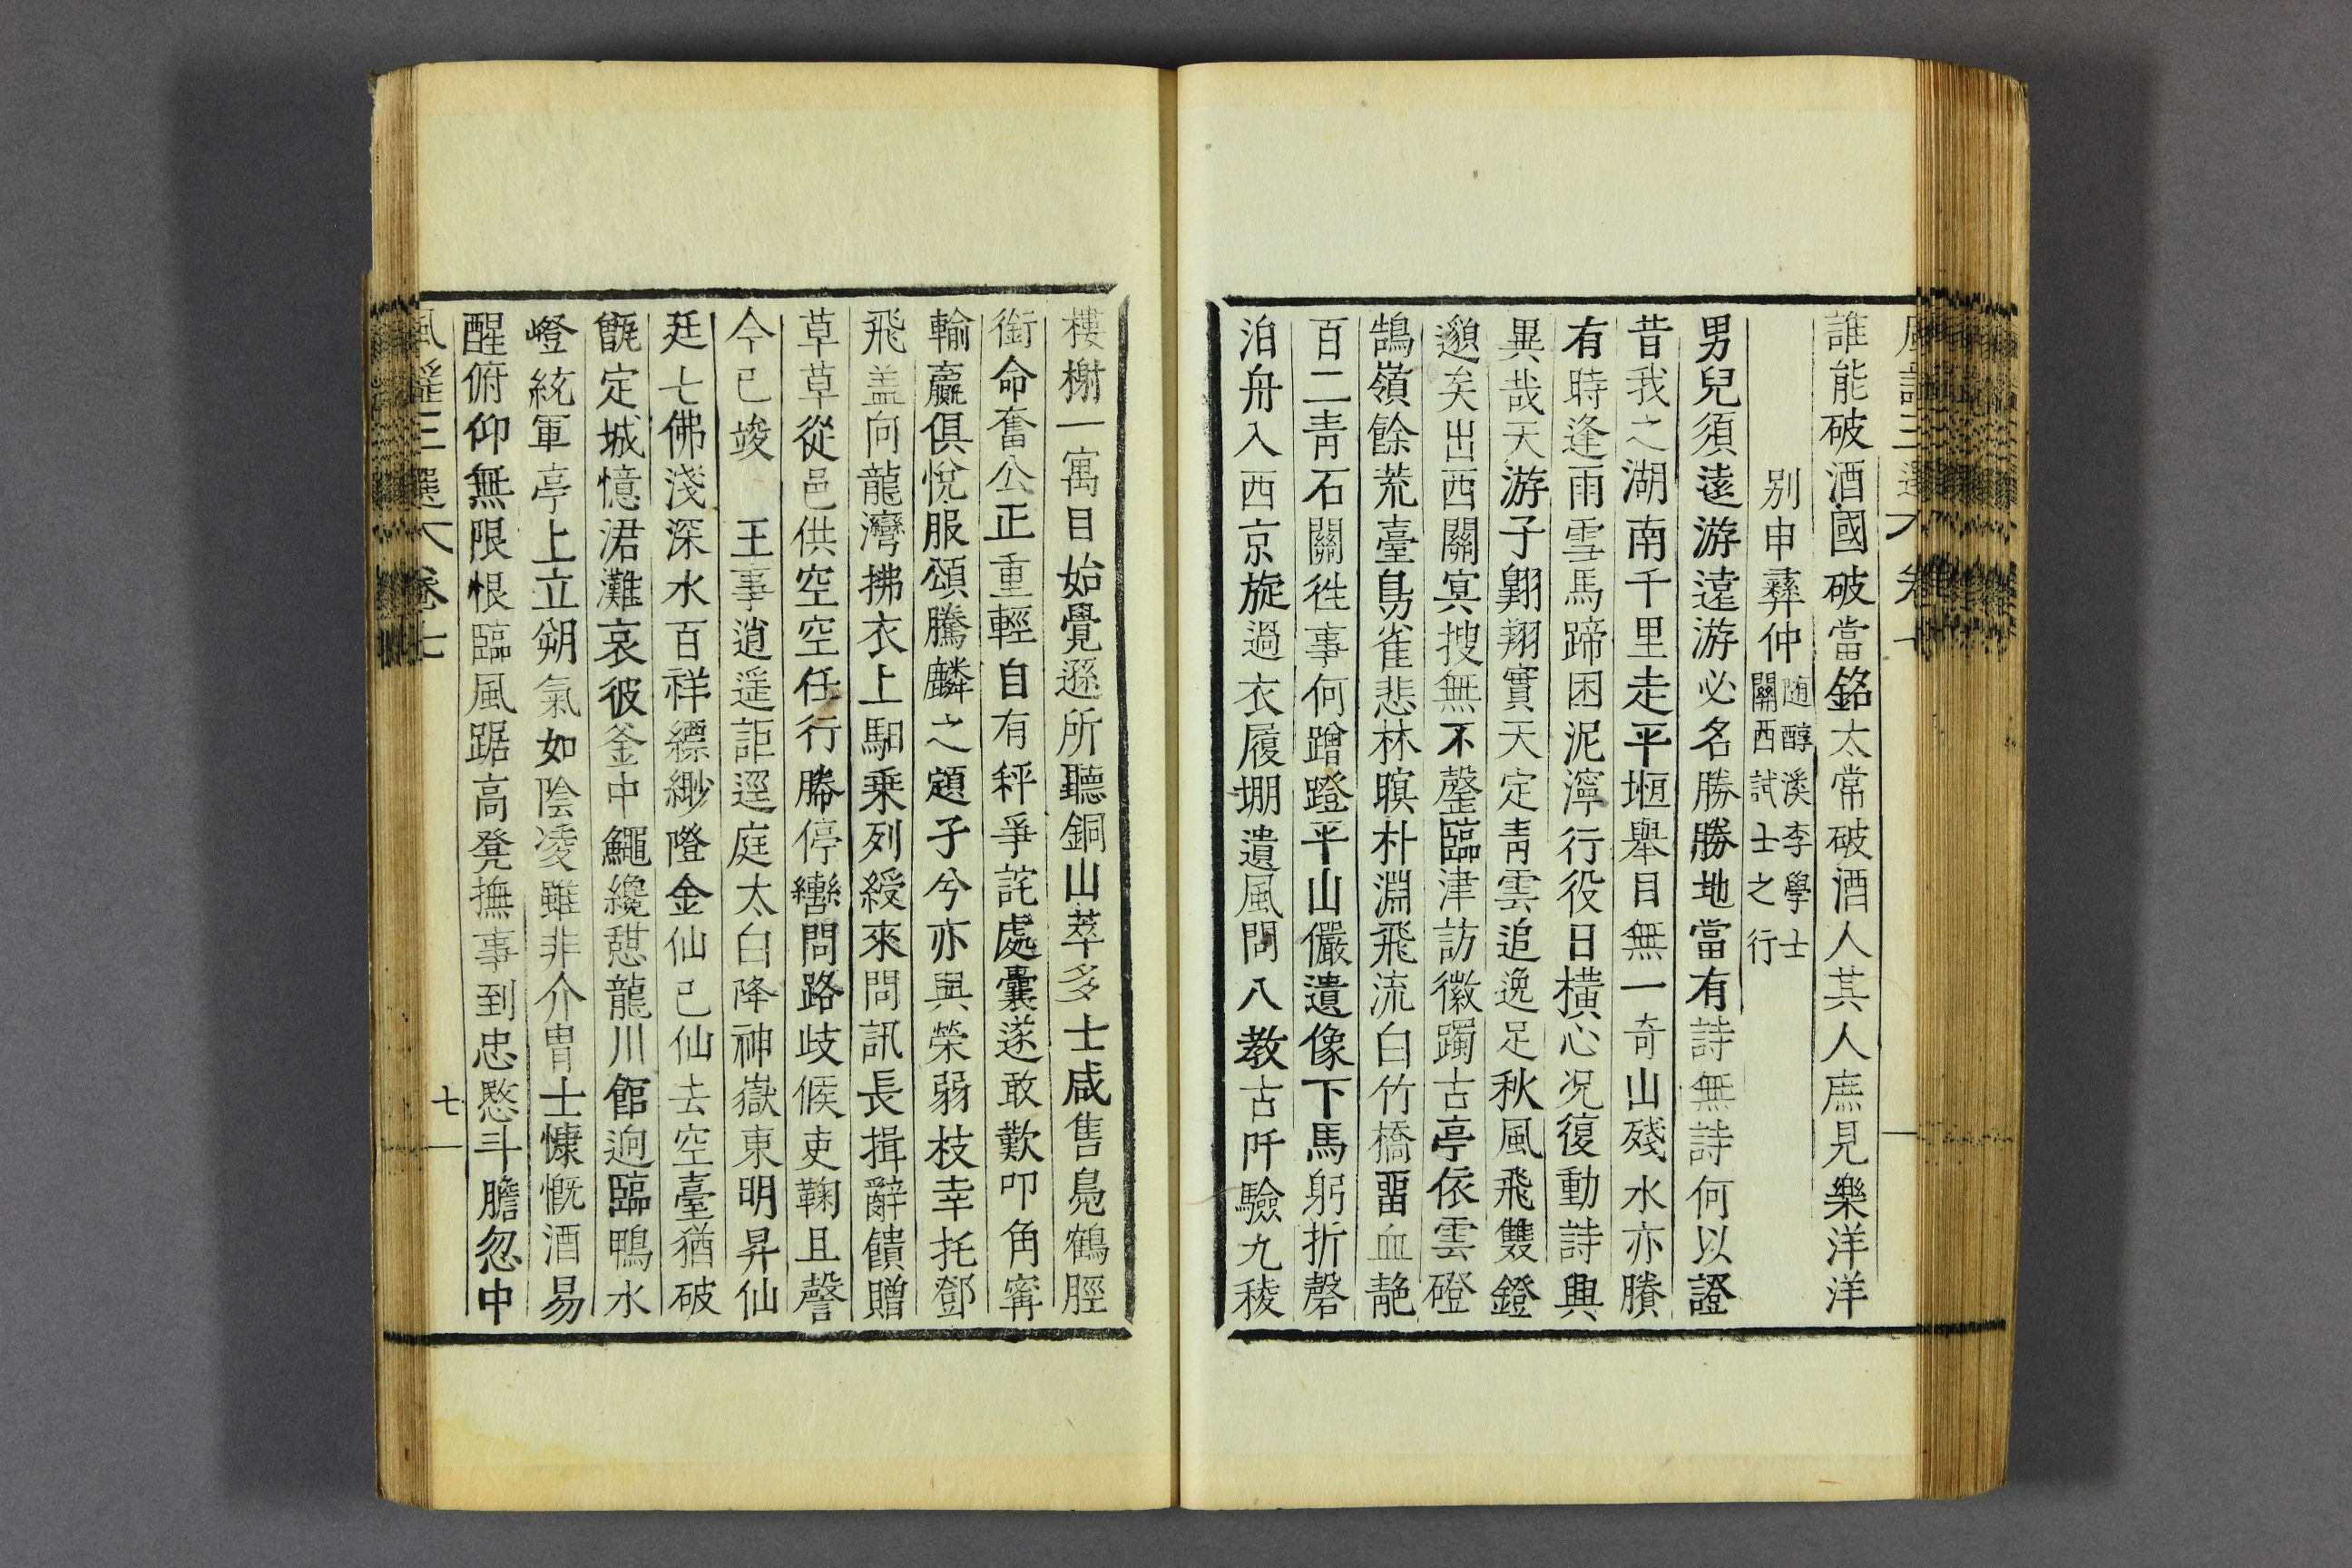 誰能破酒國破當銘太常破酒人其人庶見樂洋洋
別申彝仲
随醇溪李學士
關西試士之行
男兒須遠游遠游必名勝勝地當有詩無詩何以證
昔我之湖南千里走平堩舉目無一奇山殘水亦賸
有時逢雨雪馬蹄困泥濘行役日橫心况復動詩興
異哉天游子翺翔實天定靑雲追逸足秋風飛雙鐙
邈矣出西關冥搜無不罄臨津訪徽躅古亭依雲磴
鵠嶺餘荒臺鳥雀悲林暝朴淵飛流白竹橋畱血靘
百二靑石關徃事何蹭蹬平山儼遺像下馬躬折磬
泊舟入西京旋過衣履堋遺風問八教古阡驗九稜
樓榭一寓目始覺遜所聽銅山萃多士咸售鳧鶴脛
銜命奮公正重輕自有秤爭詫處囊遂敢歎叩角寗
輸贏俱悅服頌騰麟之題子兮亦與榮弱枝幸托鄧
飛盖向龍灣拂衣上馹乗列綬來問訊長揖辭饋贈
草草從邑供空空任行勝停轡問路歧候吏鞠且謦
今已竣　王事逍遥詎逕庭太白降神嶽東明昇仙
廷七佛淺深水百祥縹緲隥金仙已仙去空臺猶破
甑定城憶涒灘哀彼釜中鱦纔憇龍川館迥臨鴨水
嶝統軍亭上立朔氣如陰凌雖非介胄士慷慨酒易
醒俯仰無限恨臨風踞高凳撫事到忠愍斗膽忽中
風謠三選 卷七
七